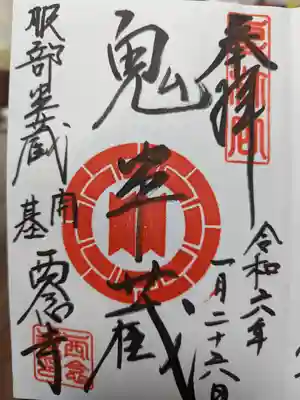 奉拝
令和六年
一月二十六日
鬼半蔵
服部半蔵開基
西念寺